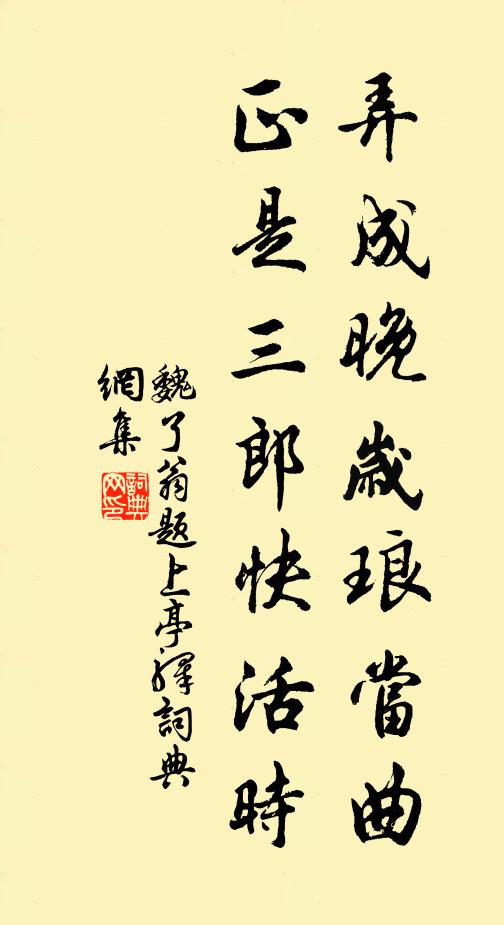 弄成晚歲琅當曲
正是三郎快活時
魏了翁題上亭驛詞典
網集
詞典
网印